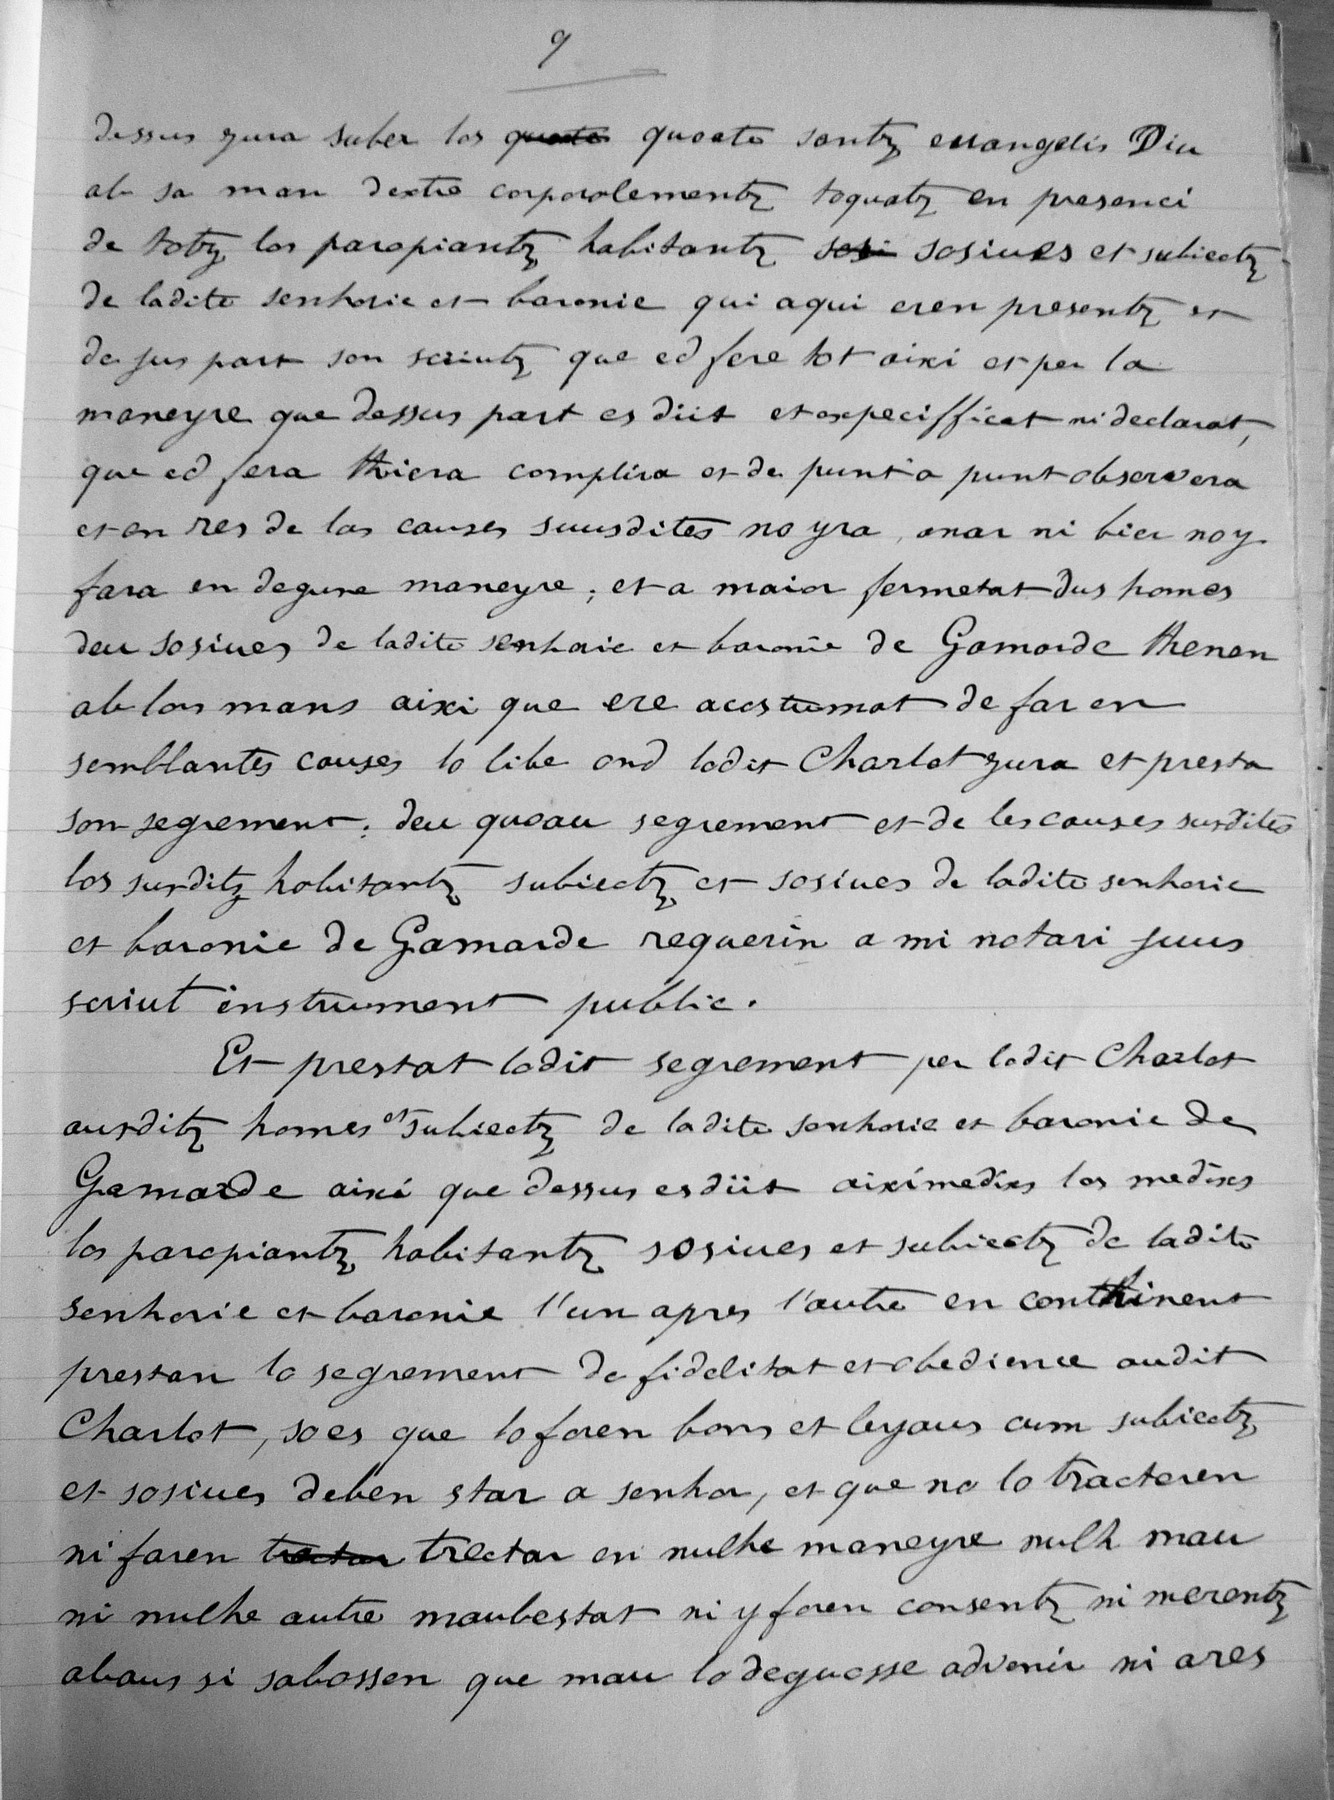 9
dessus jura suber los quoate quoate santz euangelis Diu
ab sa man dextre corporolementz toquatz en presenci
de totz los paropiantz habitantz sosi sosiues et subiectz
de ladite senhorie et baronie qui aqui eren presentz et
de jus part son scriutz que ed fere tot aixi et per la
maneyre que dessus part es diit et expecifficat ni declarat,
que ed fera thiera complira et de punt a punt observera
et en res de las causes suusdites no yra, anar ni bier noy
fara en degune maneyre ; et a maior fermetat dus homes
deu sosiues de ladite senhorie et baronie de Gamarde thenen
ab lors mans aixi que ere acostumat de far en
semblantes causes lo libe ond lodit Charlot jura et presta
son segrement ; deu quoau segrement et de les causes susdites
los susditz habitantz subiectz et sosiues de ladite senhorie
et baronie de Gamarde requerin a mi notari juus
scriut instrument public.
Et prestat lodit segrement per lodit Charlot
ausditz homes et subiectz de ladite senhorie et baronie de
Gamarde aixi que dessus es diit aiximedixs los medixs
los paropiantz habitantz sosiues et subiectz de ladite
senhorie et baronie l'un apres l'autre en conthinent
prestan lo segrement de fidelitat et obedience audit
Charlot, so es que lo faren bons et leyaus cum subiectz
et sosiues deben star a senhor, et que no lo tracteren
ni faren trectar trectar en nulhe maneyre nulh mau
ni nulhe autre maubestat ni y faren consentz ni merentz
abans si sabossen que mau lo deguosse advenir ni ares